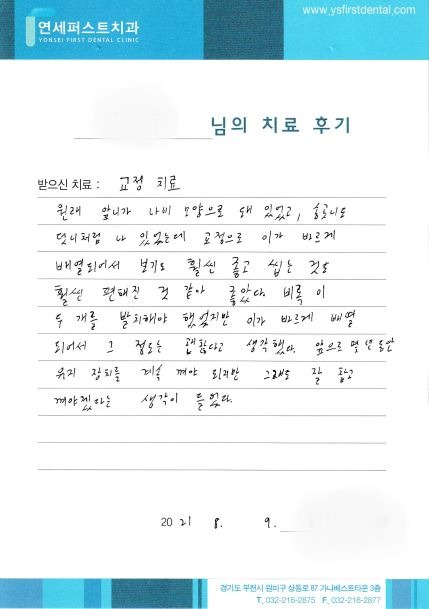 www.ysfirstdental.com
연세퍼스트치과
YONSEI FIRST DENTAL CLINIC
님의 치료 후기
받으신 치료 : 교정 치료
원래 앞니가 나비 모양으로 돼 있었고, 송곳니도
덧니처럼 나 있었는데 교정으로 이가 바르게
배열되어서 보기도 훨씬 좋고 씹는 것도
훨씬 편해진 것 같아 좋았다. 비록 이
두 개를 발치해야 했었지만 이가 바르게 배열
되어서 그 정도는 괜찮다고 생각했다. 앞으로 몇 년 동안
유지 장치를 계속 껴야 되지만 그래도 잘 참고
껴야겠다는 생각이 들었다.
2021 8. 9.
경기도 부천시 원미구 상동로 87 가나베스트타운 3층
T. 032-216-2875 F. 032-216-2877